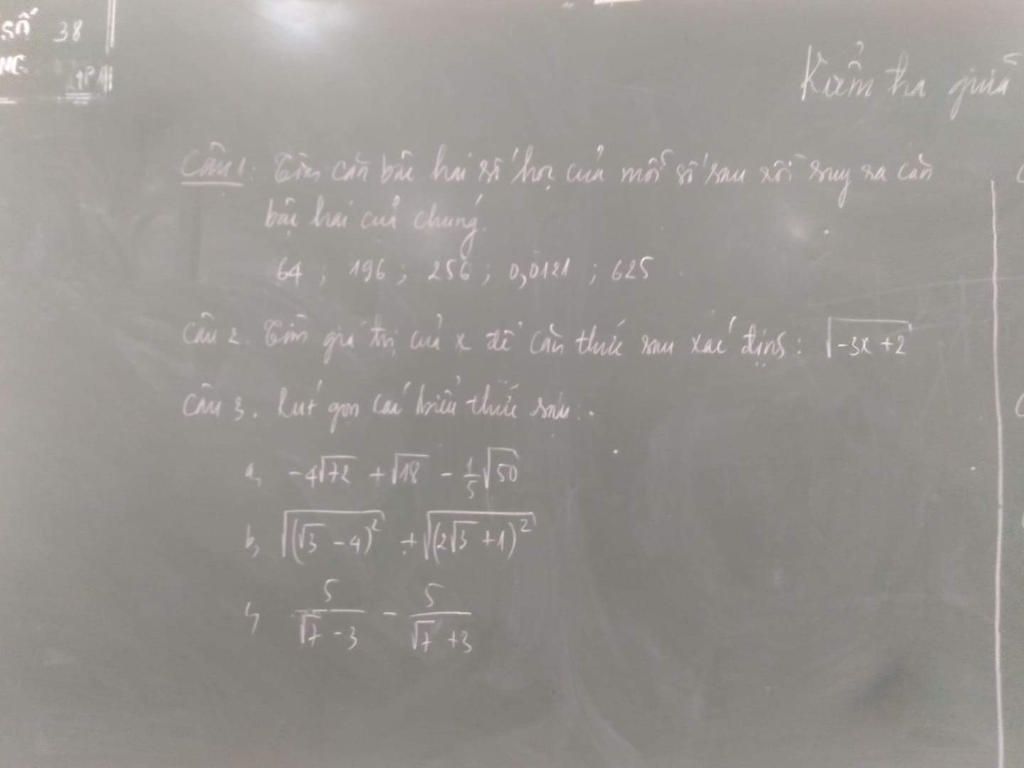 SỐ 38
Kiểm tra giữa
Câu 1: Tìm căn bậc hai số học của mỗi số sau rồi suy ra căn
bậc hai của chúng.
64 ; 196 ; 256 ; 0,0121 ; 625
Câu 2. Tìm giá trị của x để căn thức sau xác định: √(-3x + 2)
Câu 3. Rút gọn các biểu thức sau:
a, -4√72 + √18 - 1/5 √50
b, √((√3 - 4)²) + √((2√3 + 1)²)
c, 5/(√7 - 3) - 5/(√7 + 3)